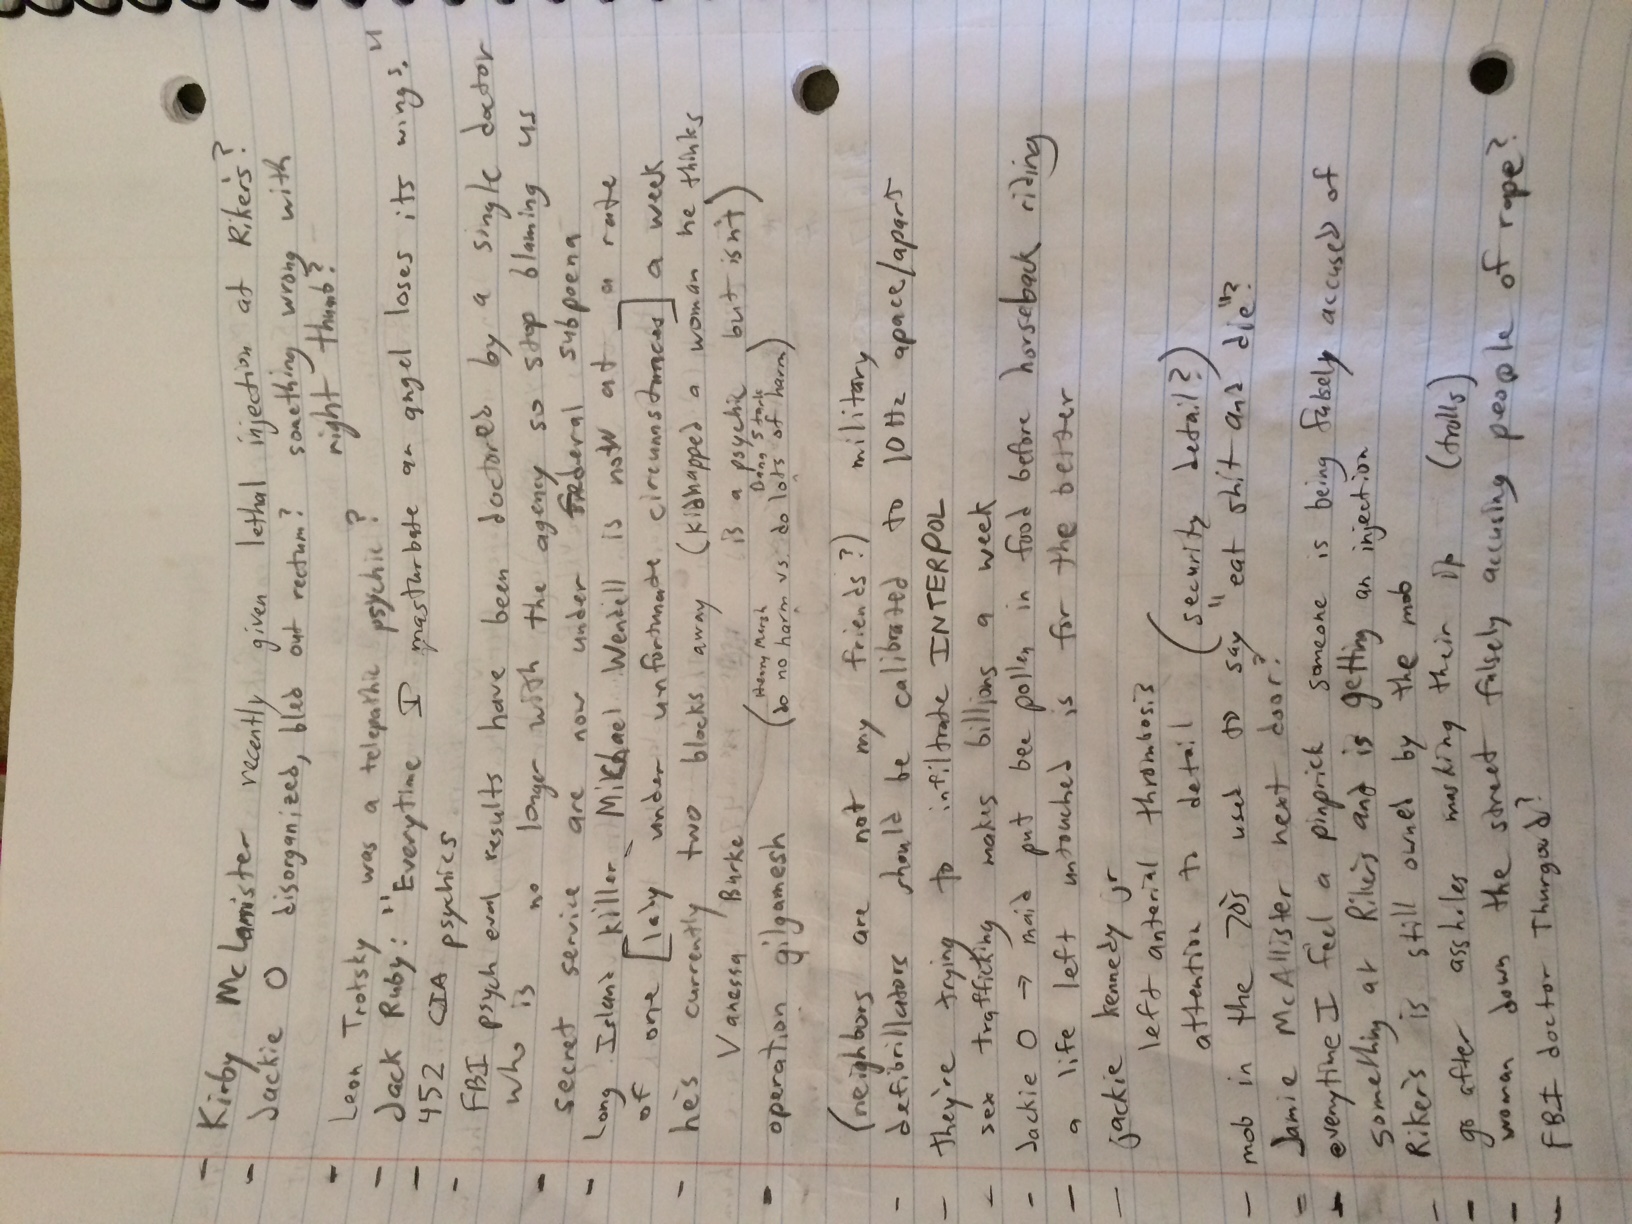 - Kirby McLamister recently given lethal injection at Riker's?
- Jackie O disorganized, bled out rectum? something wrong with
right thumb?
- Leon Trotsky was a telepathic psychic?
- Jack Ruby: "Everytime I masturbate an angel loses its wings."
- 452 CIA psychics
- FBI psych eval results have been doctored by a single doctor
who is no longer with the agency so stop blaming us
- secret service are now under federal subpoena
- Long Island killer Michael Wendell is now at a rate
of one [lady under unfortunate circumnstances] a week
- he's currently two blocks away (kidnapped a woman he thinks
Vanessa Burke is a psychic but isn't)
Henry Marsh Dang Stark
- operation gilgamesh (do no harm vs. do lots of harm)
(neighbors are not my friends?) military
- defibrillators should be calibrated to 10 Hz apace/apart
- they're trying to infiltrate INTERPOL
- sex trafficking makes billions a week
- Jackie O → maid put bee pollen in food before horseback riding
- a life left untouched is for the better
- jackie kennedy jr
left anterial thrombosis
attention to detail (security detail?)
- mob in the 70s used to say "eat shit and die"?
- Jamie McAllister next door?
- everytime I feel a pinprick someone is being falsely accused of
something at Riker's and is getting an injection
- Riker's is still owned by the mob
- go after assholes masking their ip (trolls)
- woman down the street falsely accusing people of rape?
- FBI doctor Thurgood?